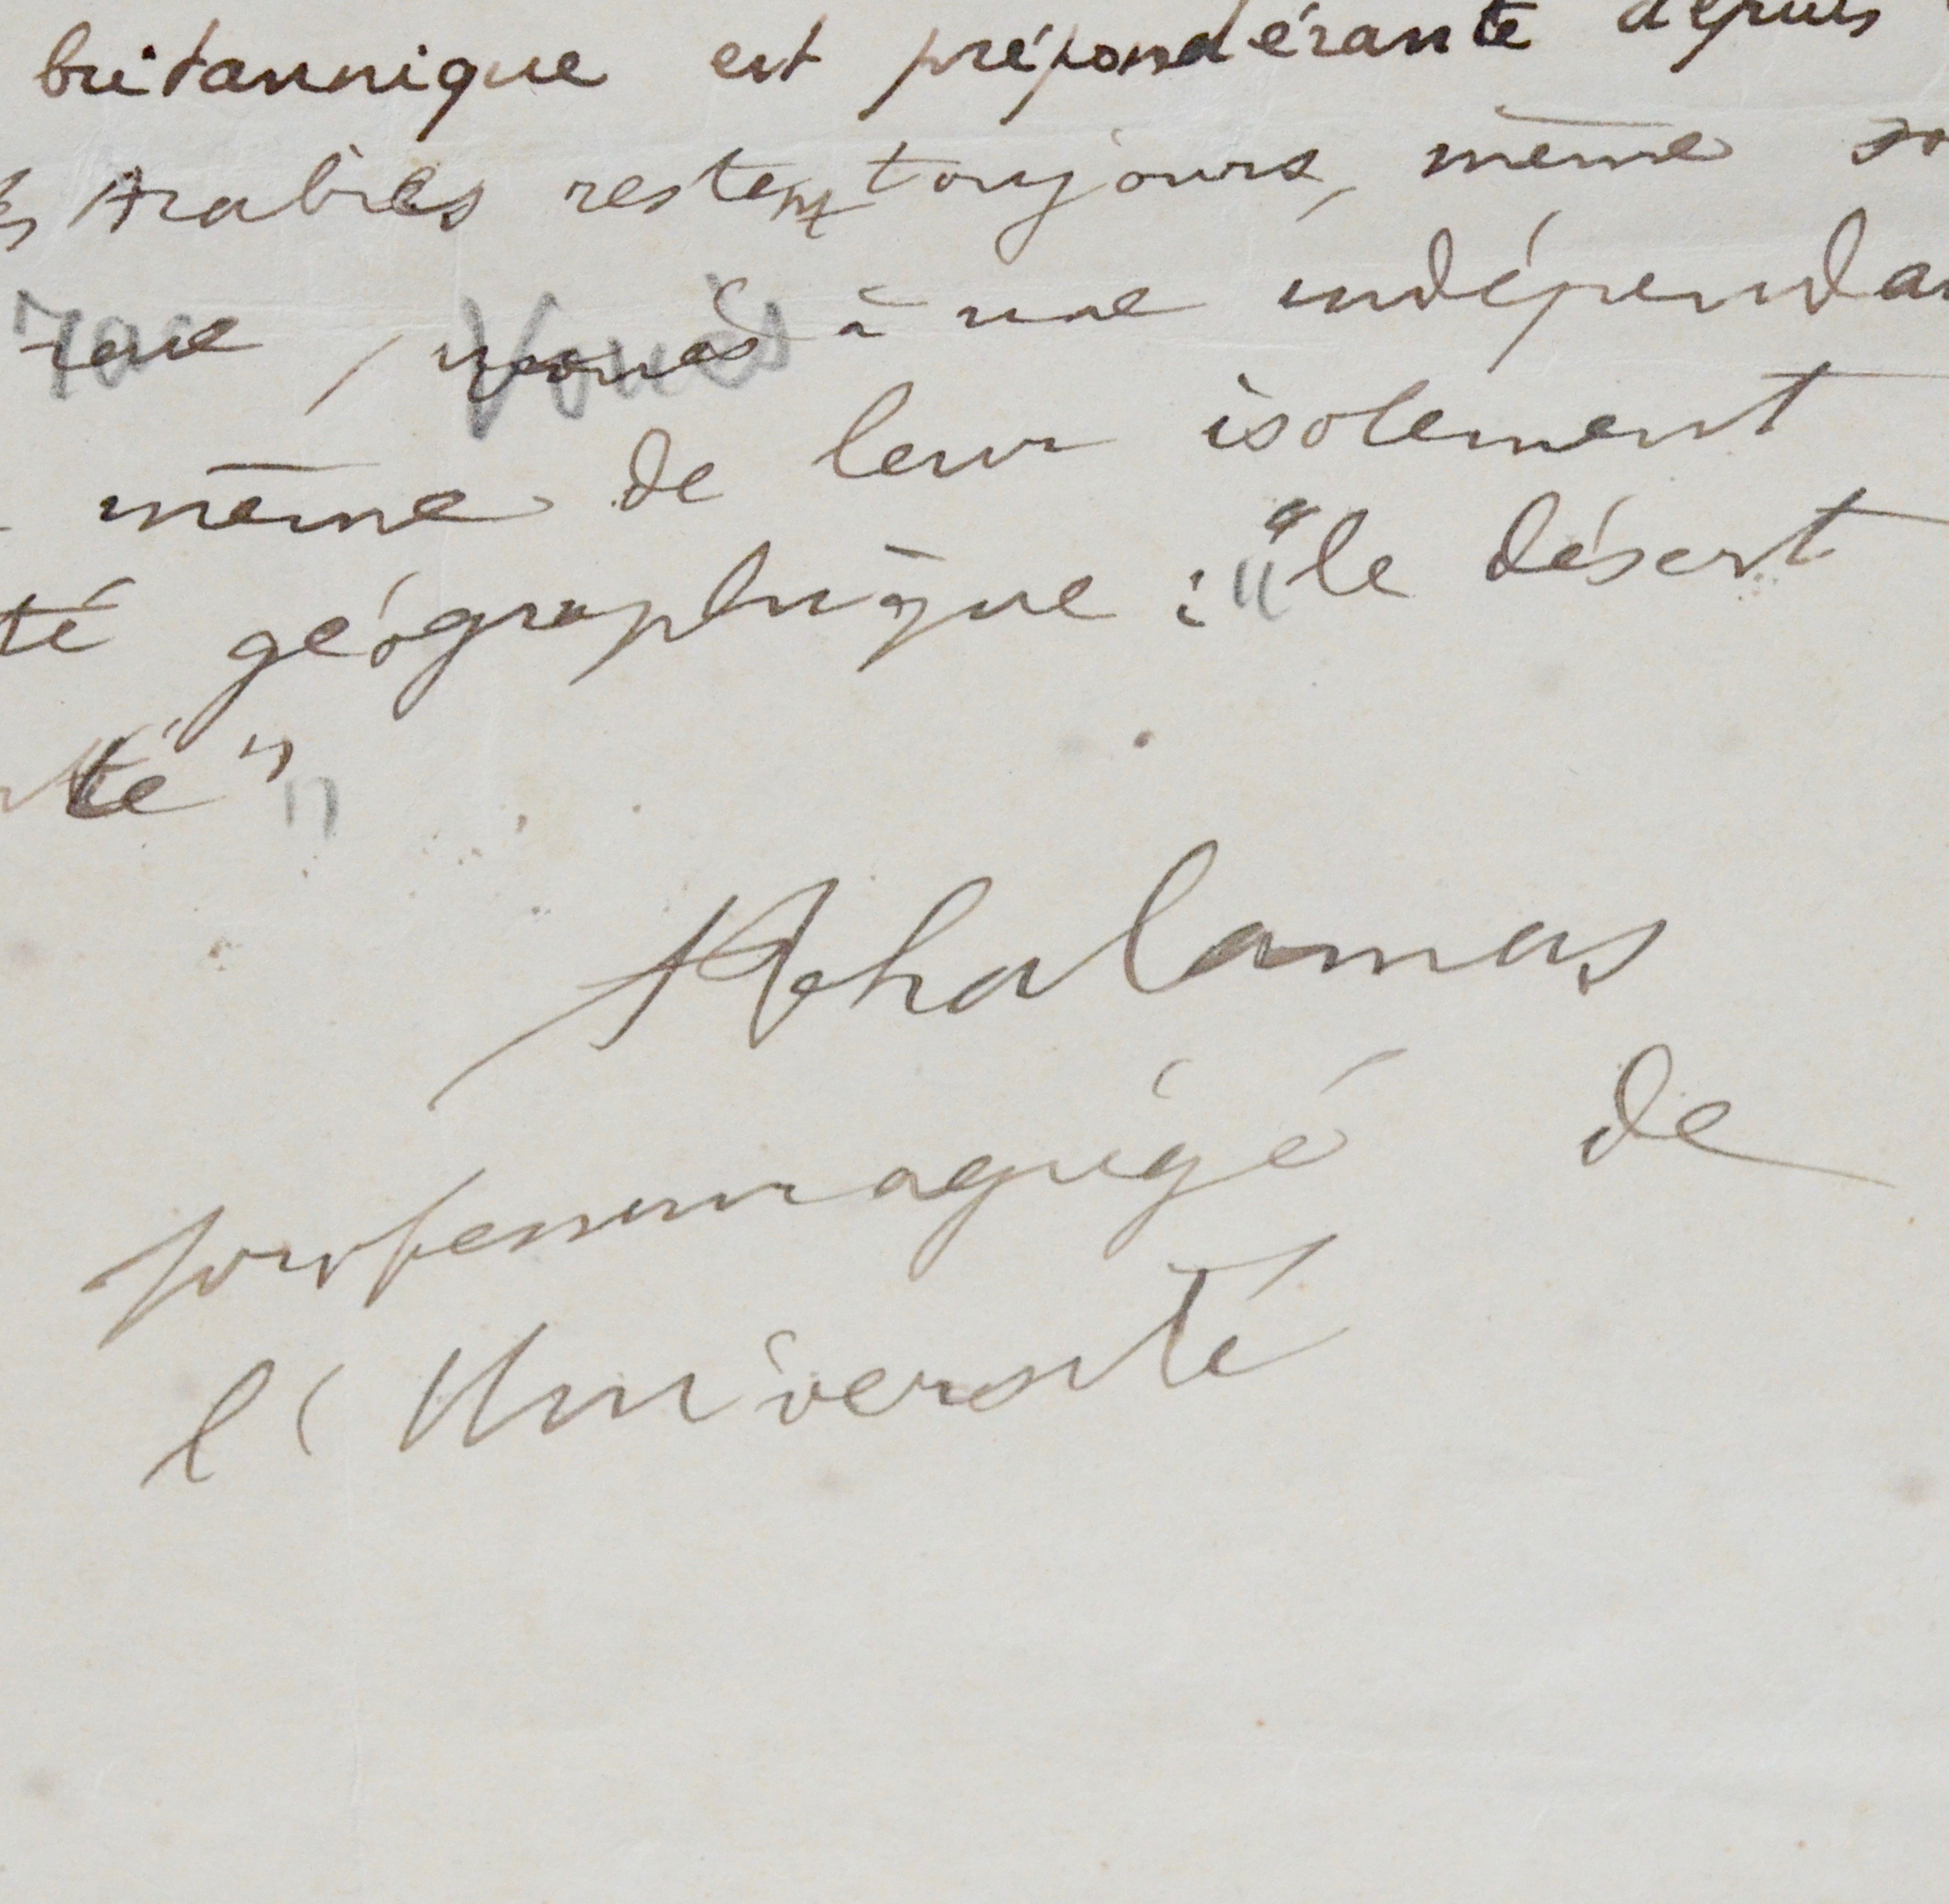 britannique est prépondérante depuis
Arabies restent toujours, même
race, voués à une indépendan
même de leur isolement
té géographique : "le désert
té"
AThalamas
professeur agrégé de
l'Université